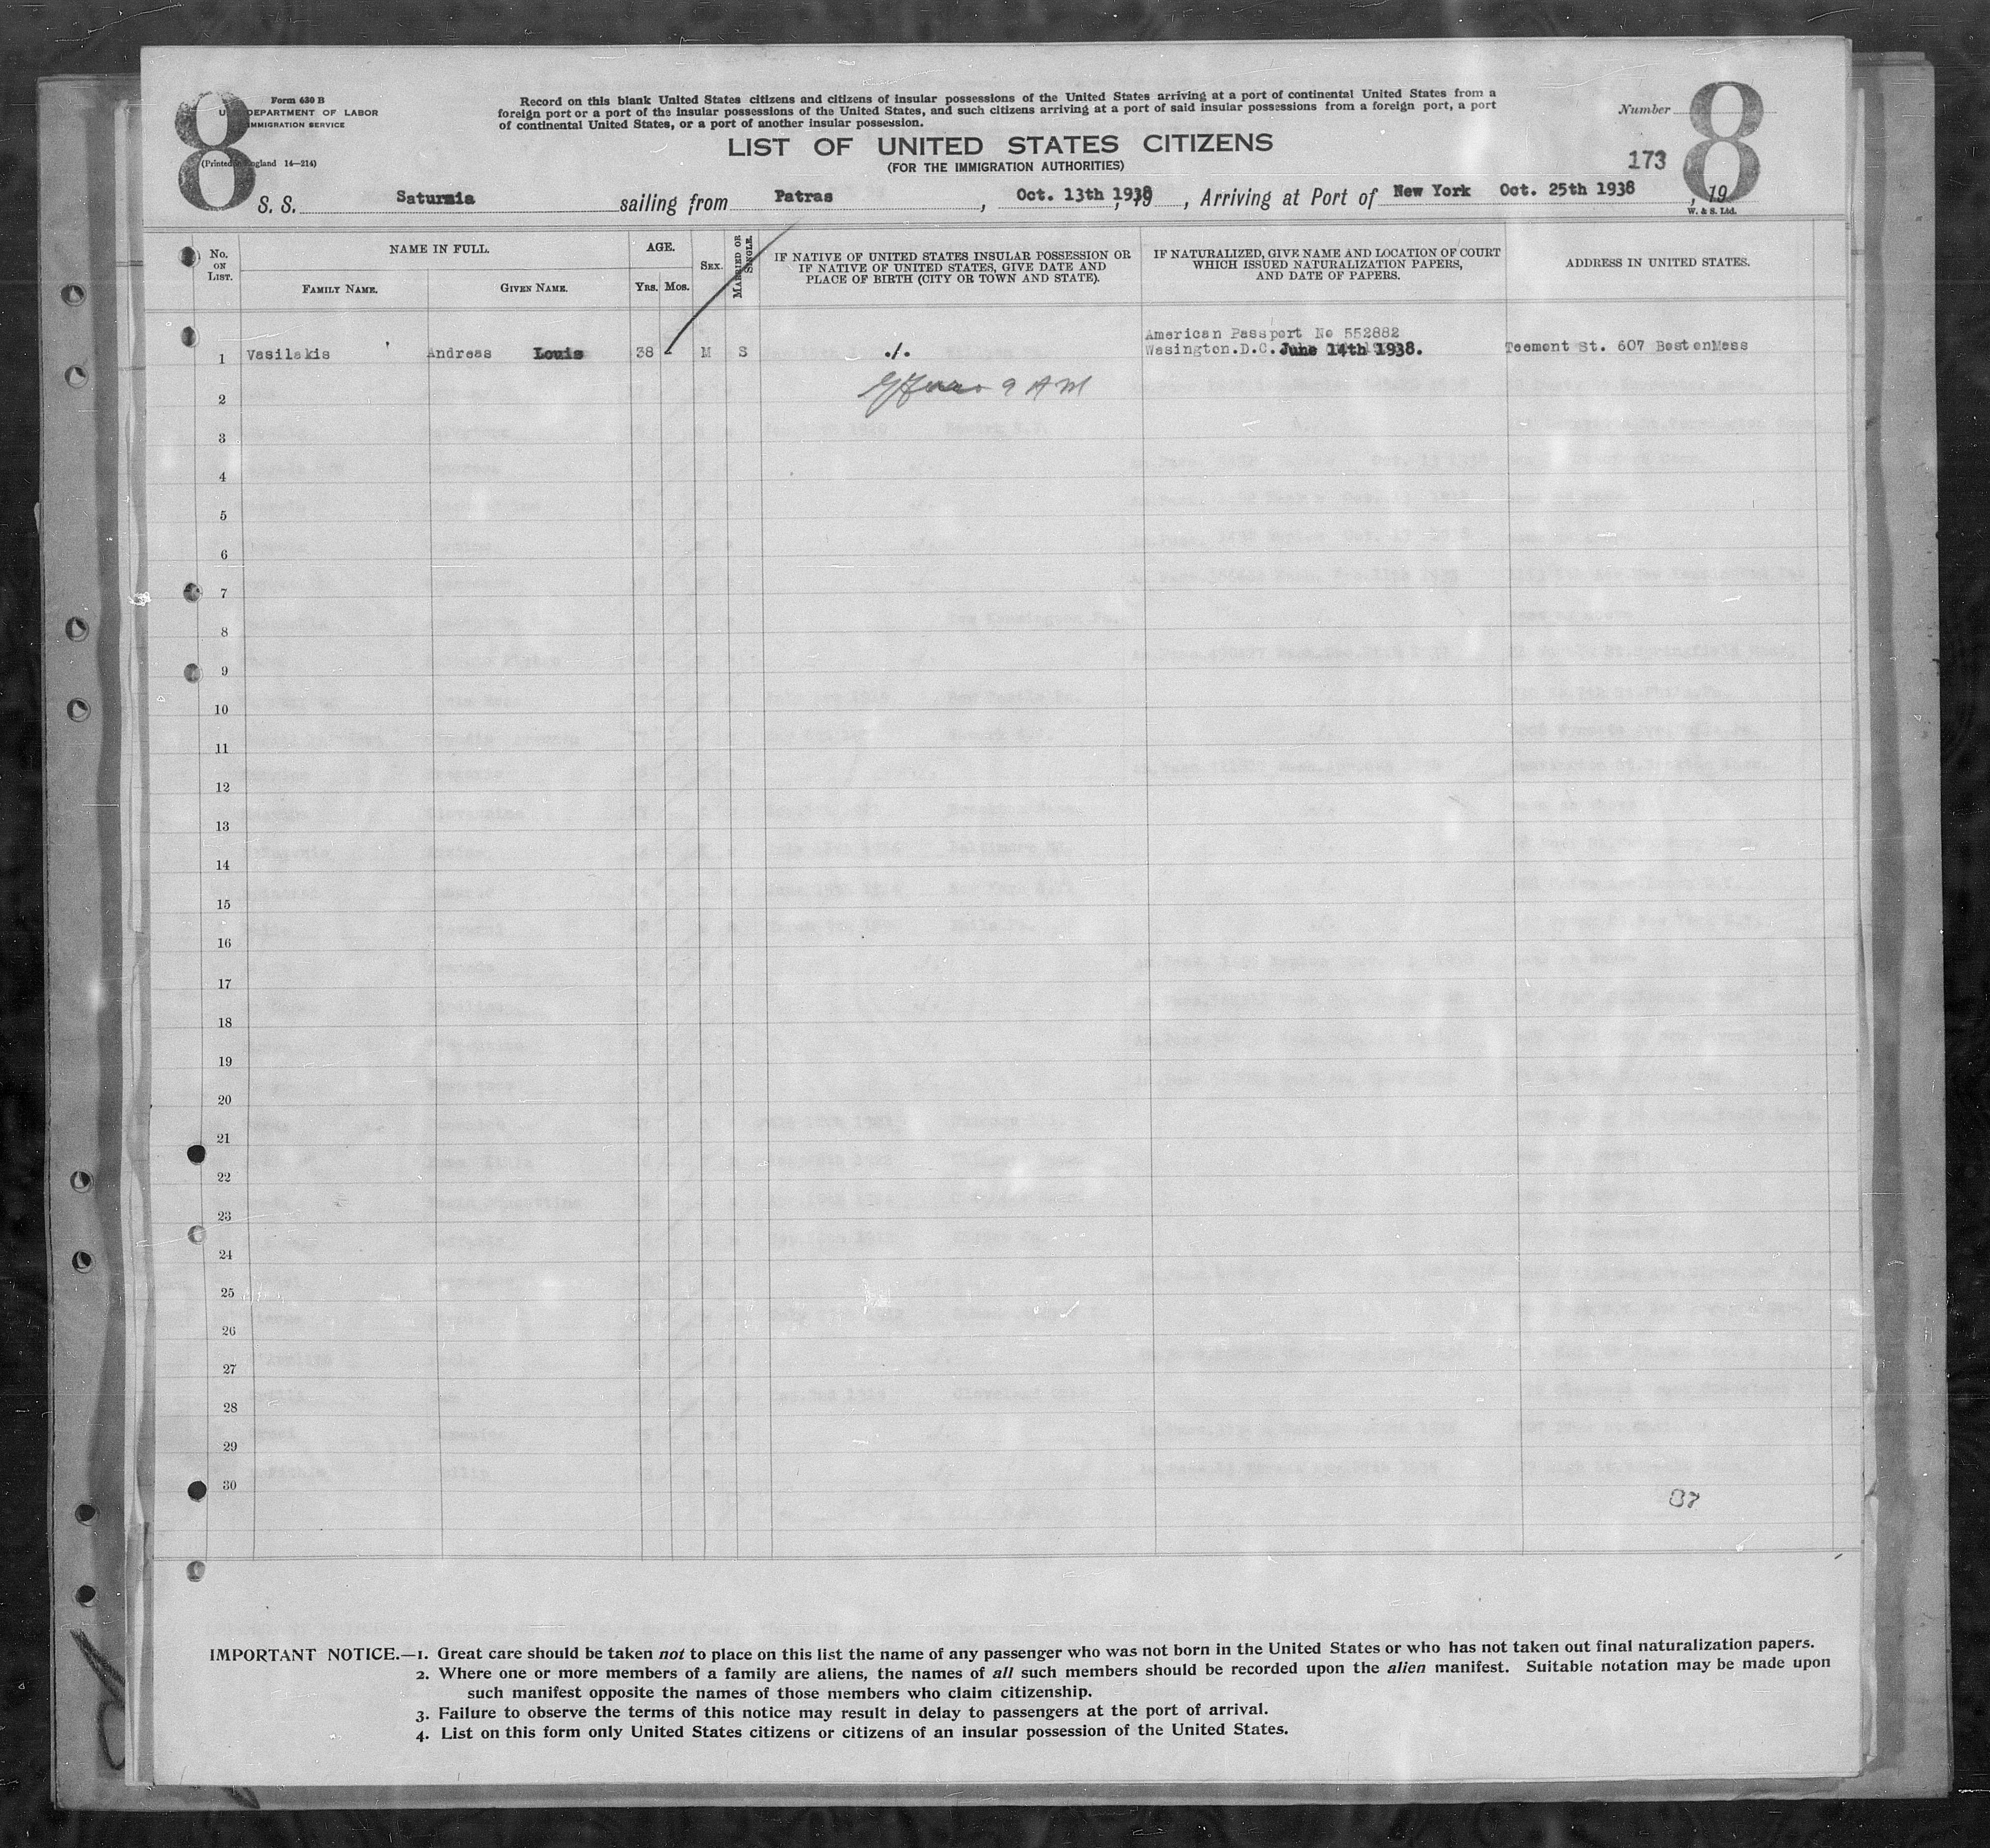 8
Form 630 B
U. S. DEPARTMENT OF LABOR
IMMIGRATION SERVICE
(Printed in England 14—214)
Record on this blank United States citizens and citizens of insular possessions of the United States arriving at a port of continental United States from a
foreign port or a port of the insular possessions of the United States, and such citizens arriving at a port of said insular possessions from a foreign port, a port
of continental United States, or a port of another insular possession.
Number
8
LIST OF UNITED STATES CITIZENS
(FOR THE IMMIGRATION AUTHORITIES)
173
S. S. Saturnia sailing from Patras, Oct. 13th 1938 19, Arriving at Port of New York Oct. 25th 1938, 19
W. & S. Ltd.
No. ON LIST.
NAME IN FULL.
FAMILY NAME.
GIVEN NAME.
AGE.
YRS. MOS.
SEX.
MARRIED OR SINGLE.
IF NATIVE OF UNITED STATES INSULAR POSSESSION OR
IF NATIVE OF UNITED STATES, GIVE DATE AND
PLACE OF BIRTH (CITY OR TOWN AND STATE).
IF NATURALIZED, GIVE NAME AND LOCATION OF COURT
WHICH ISSUED NATURALIZATION PAPERS,
AND DATE OF PAPERS.
ADDRESS IN UNITED STATES.
American Passport No 552882
1 Vasilakis Andreas Louis 38 - M S ./. Wasington.D.C. June 14th 1938. Teemont St. 607 BostonMess
2 9 AM
3
4
5
6
7
8
9
10
11
12
13
14
15
16
17
18
19
20
21
22
23
24
25
26
27
28
29
30
37
IMPORTANT NOTICE.—1. Great care should be taken not to place on this list the name of any passenger who was not born in the United States or who has not taken out final naturalization papers.
2. Where one or more members of a family are aliens, the names of all such members should be recorded upon the alien manifest. Suitable notation may be made upon
such manifest opposite the names of those members who claim citizenship.
3. Failure to observe the terms of this notice may result in delay to passengers at the port of arrival.
4. List on this form only United States citizens or citizens of an insular possession of the United States.